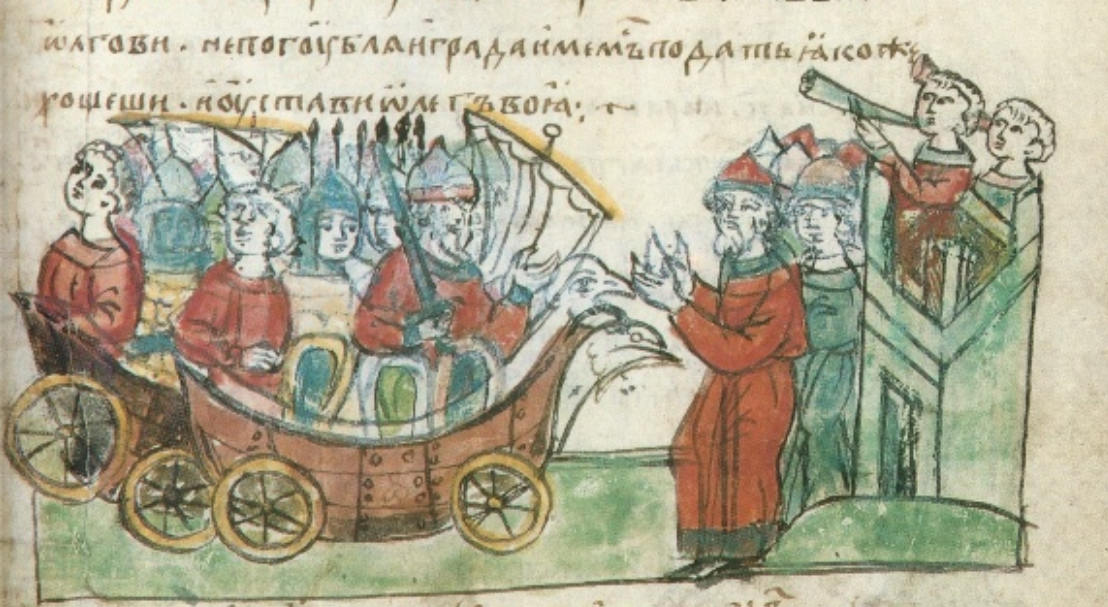 ѡлгови · непогоублѧиграда имемъ подать ꙗкоже
хощеши · иоустави ѡлегъ воꙗ: ~